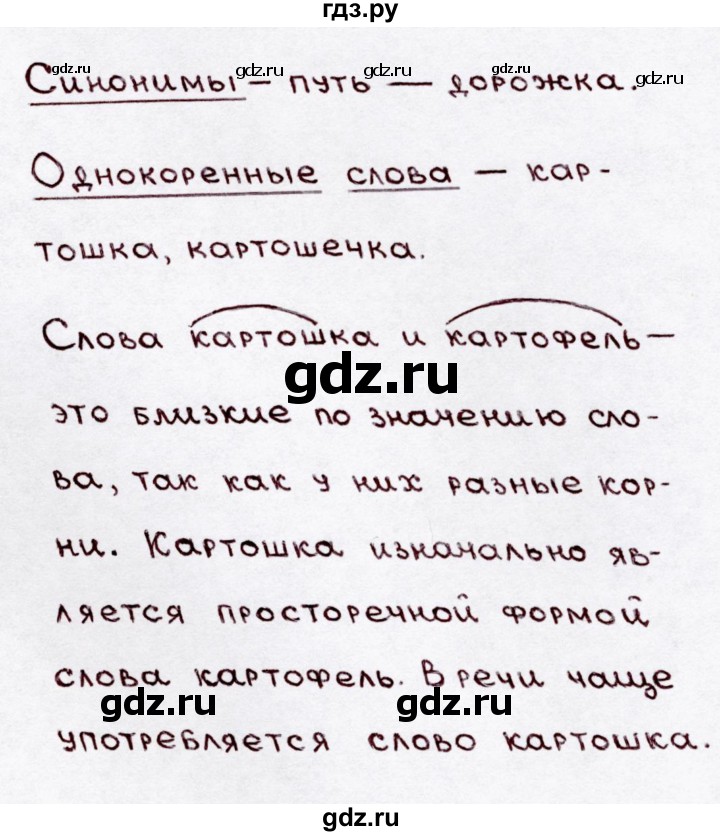 гдз.ру
gdz.ru gdz.ru gdz.ru gdz.ru gdz.ru
Синонимы – путь — дорожка.
Однокоренные слова — кар-
тошка, картошечка.
Слова картошка и картофель —
gdz.ru
это близкие по значению сло-
ва, так как у них разные кор-
ни. Картошка изначально яв-
ляется просторечной формой
слова картофель. В речи чаще
gdz.ru gdz.ru
употребляется слово картошка.
gdz.ru